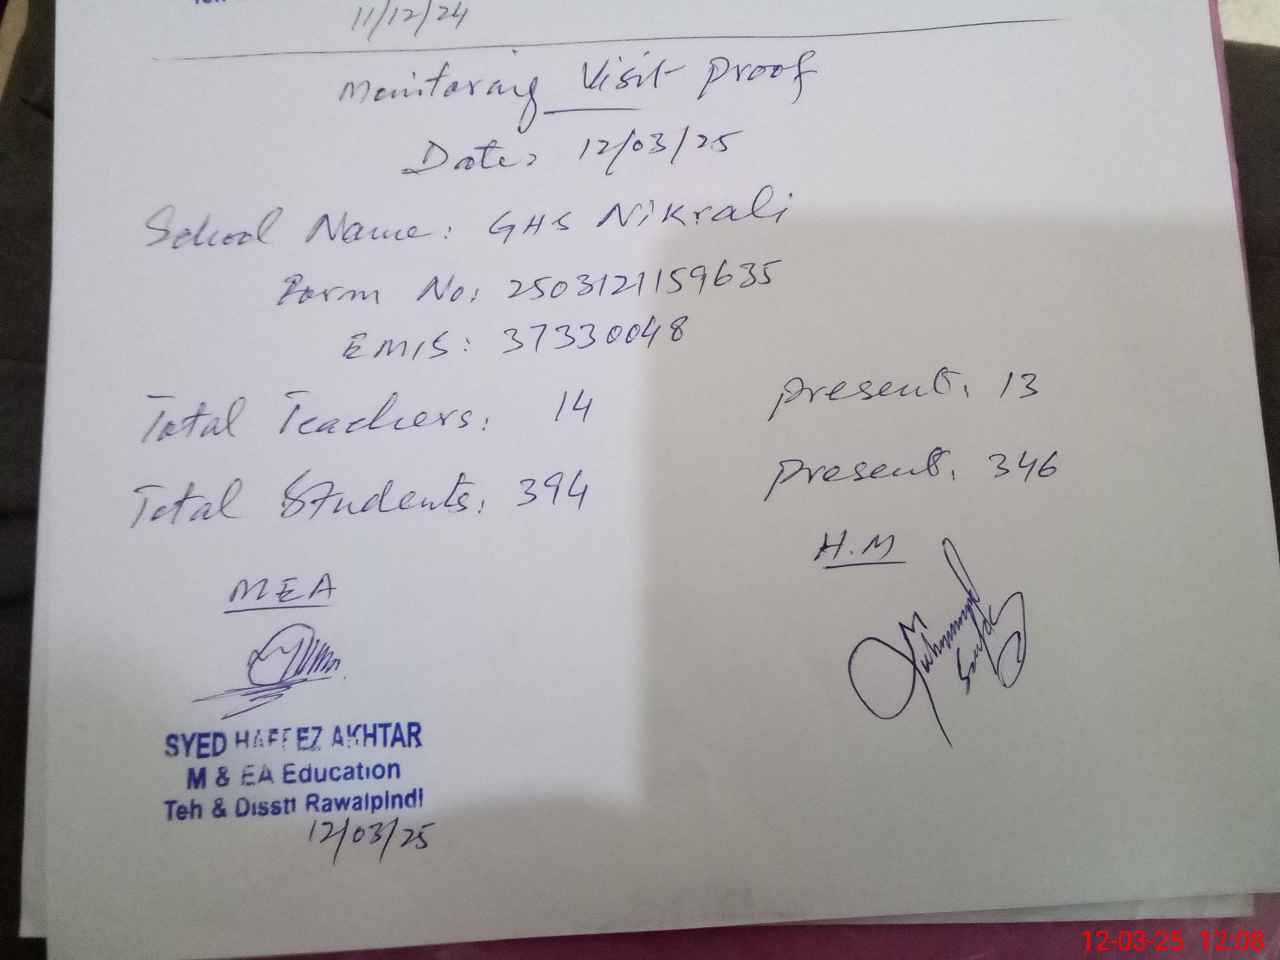 11/12/24
Monitoring Visit Proof
Date: 12/03/25
School Name: GHS Nikrali
Form No: 2503121159635
EMIS: 37330048
Total Teachers: 14 present: 13
Total Students: 394 present: 346
MEA H.M
Muhammad
SYED HAFEEZ AKHTAR
M & EA Education
Teh & Disstt Rawalpindi
12/03/25
12-03-25 12:08